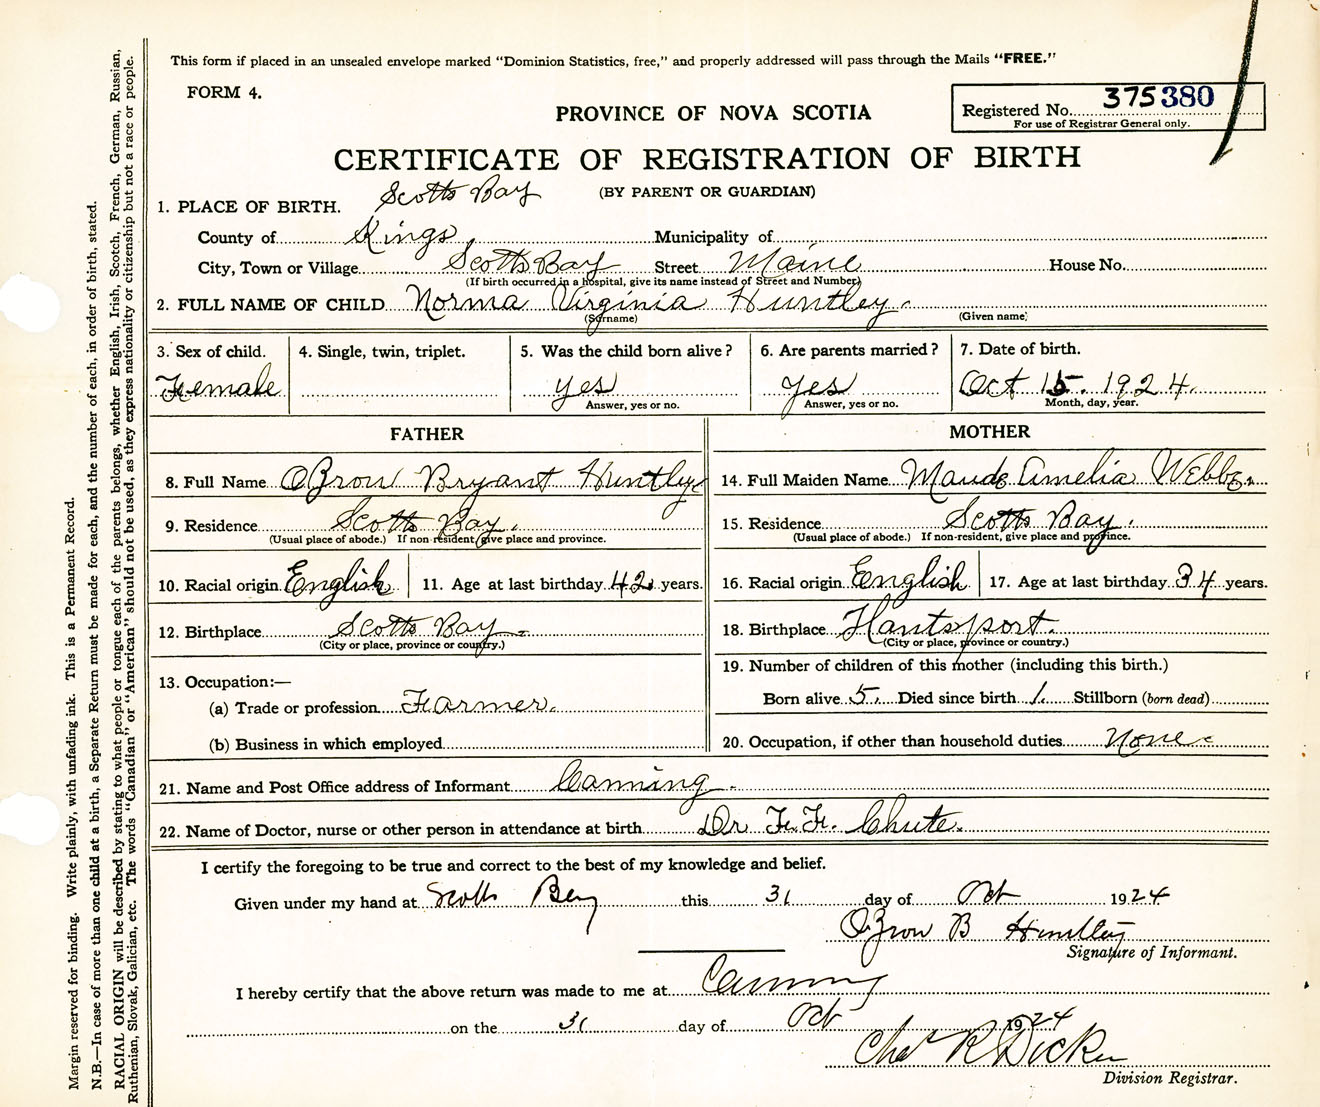 This form if placed in an unsealed envelope marked "Dominion Statistics, free," and properly addressed will pass through the Mails "FREE."
FORM 4.
PROVINCE OF NOVA SCOTIA
Registered No. 375380
For use of Registrar General only.
CERTIFICATE OF REGISTRATION OF BIRTH
(BY PARENT OR GUARDIAN)
1. PLACE OF BIRTH. Scotts Bay
County of Kings Municipality of
City, Town or Village Scotts Bay Street Maine House No.
(If birth occurred in a hospital, give its name instead of Street and Number)
2. FULL NAME OF CHILD Norma Virginia Huntley.
(Surname) (Given name)
3. Sex of child. 4. Single, twin, triplet. 5. Was the child born alive? 6. Are parents married? 7. Date of birth.
Female yes yes Oct 15. 1924.
Answer, yes or no. Answer, yes or no. Month, day, year.
FATHER MOTHER
8. Full Name OBrow Bryant Huntley 14. Full Maiden Name Maude Amelia Webb.
9. Residence Scotts Bay. 15. Residence Scotts Bay.
(Usual place of abode.) If non-resident, give place and province. (Usual place of abode.) If non-resident, give place and province.
10. Racial origin English 11. Age at last birthday 42 years. 16. Racial origin English 17. Age at last birthday 34 years.
12. Birthplace Scotts Bay 18. Birthplace Hantsport.
(City or place, province or country.) (City or place, province or country.)
13. Occupation:— 19. Number of children of this mother (including this birth.)
(a) Trade or profession Farmer. Born alive 5. Died since birth 1. Stillborn (born dead)
(b) Business in which employed 20. Occupation, if other than household duties None
21. Name and Post Office address of Informant Canning
22. Name of Doctor, nurse or other person in attendance at birth Dr F. F. Chute.
I certify the foregoing to be true and correct to the best of my knowledge and belief.
Given under my hand at Scotts Bay this 31 day of Oct 1924
B Huntley
Signature of Informant.
I hereby certify that the above return was made to me at Canning
on the 31 day of Oct 1924
Chas R Dickie
Division Registrar.
Margin reserved for binding. Write plainly, with unfading ink. This is a Permanent Record.
N.B.—In case of more than one child at a birth, a Separate Return must be made for each, and the number of each, in order of birth, stated.
RACIAL ORIGIN will be described by stating to what people or tongue each of the parents belongs, whether English, Irish, Scotch, French, German, Russian,
Ruthenian, Slovak, Galician, etc. The words "Canadian" or "American" should not be used, as they express nationality or citizenship but not a race or people.